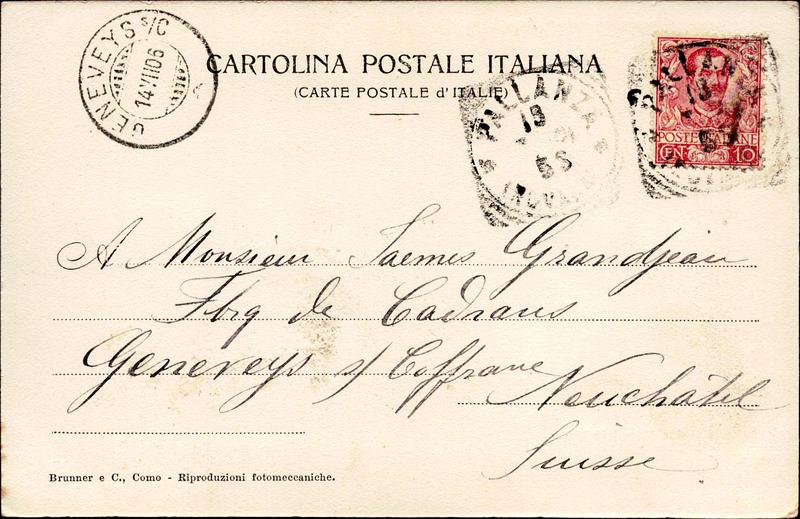 GENEVEYS s/C
14.VII 06
CARTOLINA POSTALE ITALIANA
(CARTE POSTALE d'ITALIE)
PALLANZA
13
PALLANZA
13
POSTE ITALIANE
CEN. 10
A Monsieur Jaemes Grandjean
Fbrg de Cadraus
Geneveys s/ Coffrane
Neuchâtel
Suisse
Brunner e C., Como - Riproduzioni fotomeccaniche.